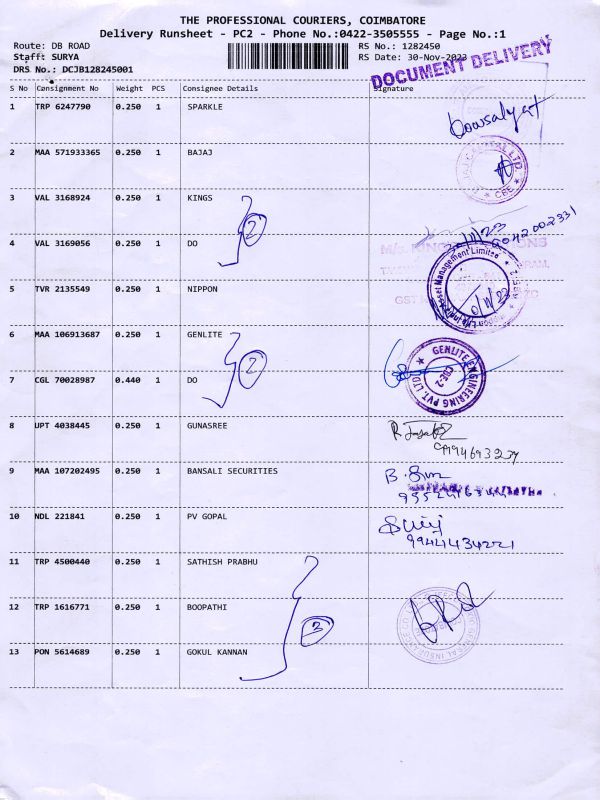 THE PROFESSIONAL COURIERS, COIMBATORE
Delivery Runsheet - PC2 - Phone No.:0422-3505555 - Page No.:1
Route: DB ROAD RS No.: 1282450
Staff: SURYA RS Date: 30-Nov-2023
DRS No.: DCJB128245001
DOCUMENT DELIVERY
S No Consignment No Weight PCS Consignee Details Signature
1 TRP 6247790 0.250 1 SPARKLE
2 MAA 571933365 0.250 1 BAJAJ
3 VAL 3168924 0.250 1 KINGS
2
4 VAL 3169056 0.250 1 DO
5 TVR 2135549 0.250 1 NIPPON
6 MAA 106913687 0.250 1 GENLITE
GENLITE ENGINEERING PVT. LTD
CBE-2
2
7 CGL 70028987 0.440 1 DO
8 UPT 4038445 0.250 1 GUNASREE
9 MAA 107202495 0.250 1 BANSALI SECURITIES
10 NDL 221841 0.250 1 PV GOPAL
9944434221
11 TRP 4500440 0.250 1 SATHISH PRABHU
12 TRP 1616771 0.250 1 BOOPATHI
13 PON 5614689 0.250 1 GOKUL KANNAN